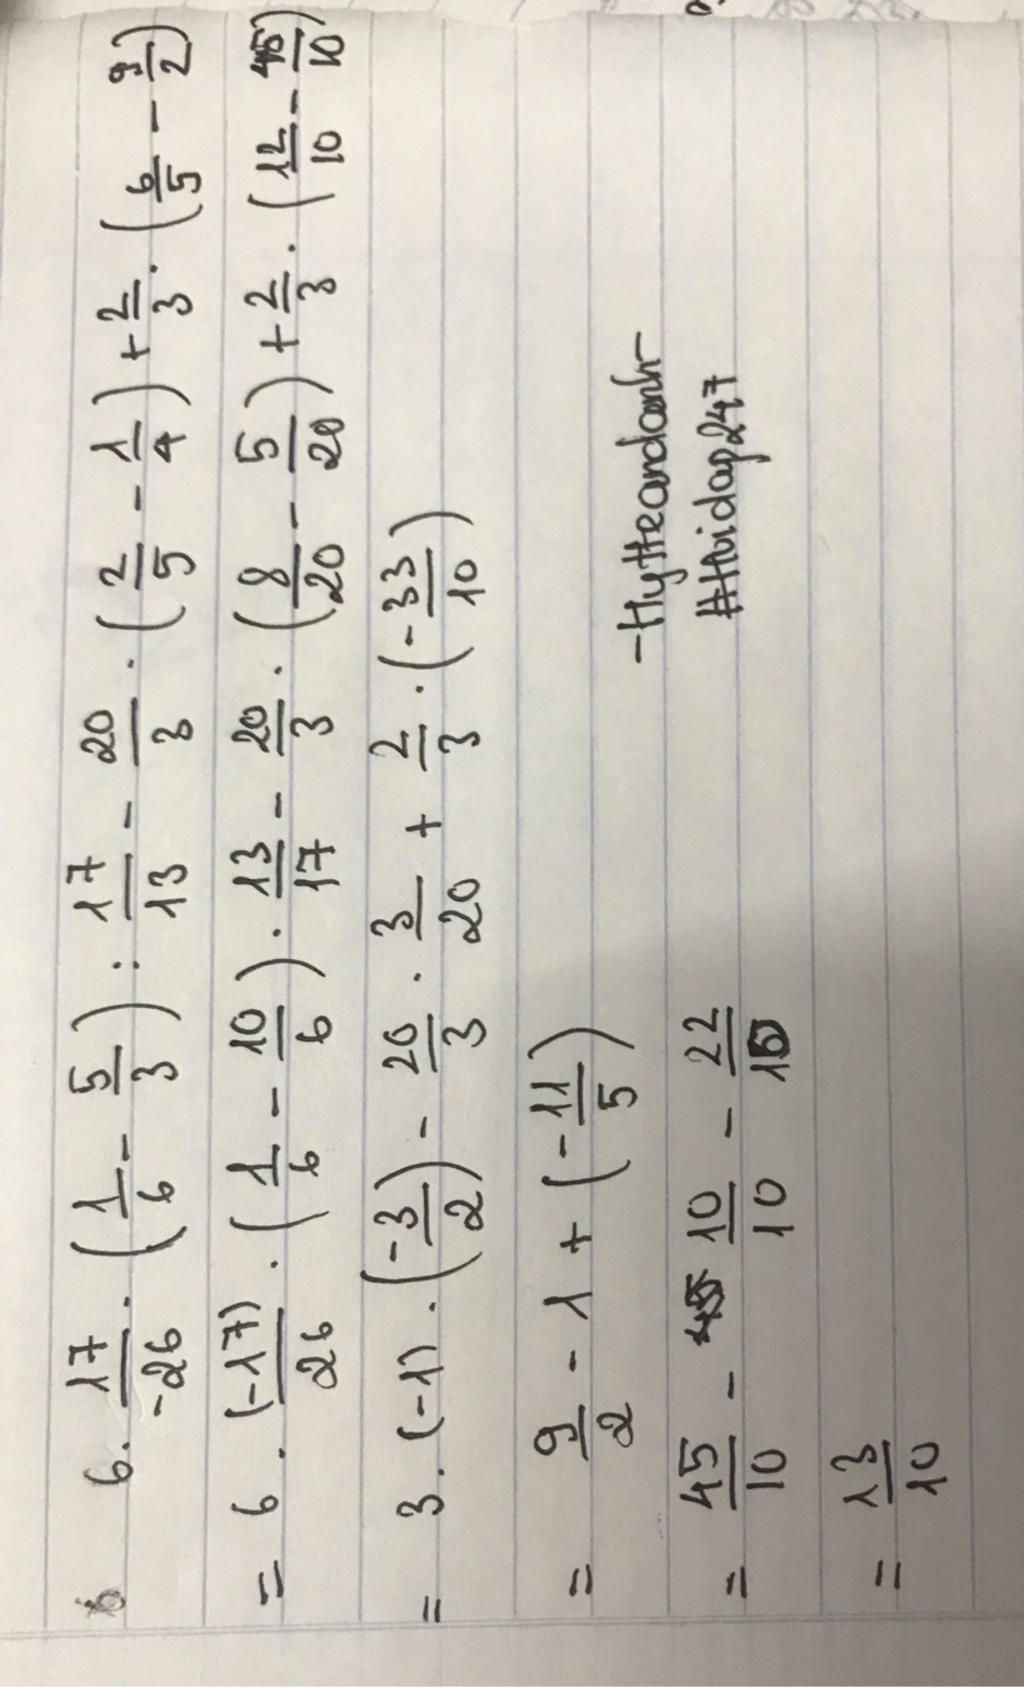 6 . 17/-26 . (1/6 - 5/3) : 17/13 - 20/3 . (2/5 - 1/4) + 2/3 . (6/5 - 9/2)
= 6 . (-17)/26 . (1/6 - 10/6) . 13/17 - 20/3 . (8/20 - 5/20) + 2/3 . (12/10 - 45/10)
= 3 . (-1) . (-3/2) - 20/3 . 3/20 + 2/3 . (-33/10)
= 9/2 - 1 + (-11/5)
= 45/10 - 10/10 - 22/10
= 13/10
-Hytteandanh-
#Hoidap247